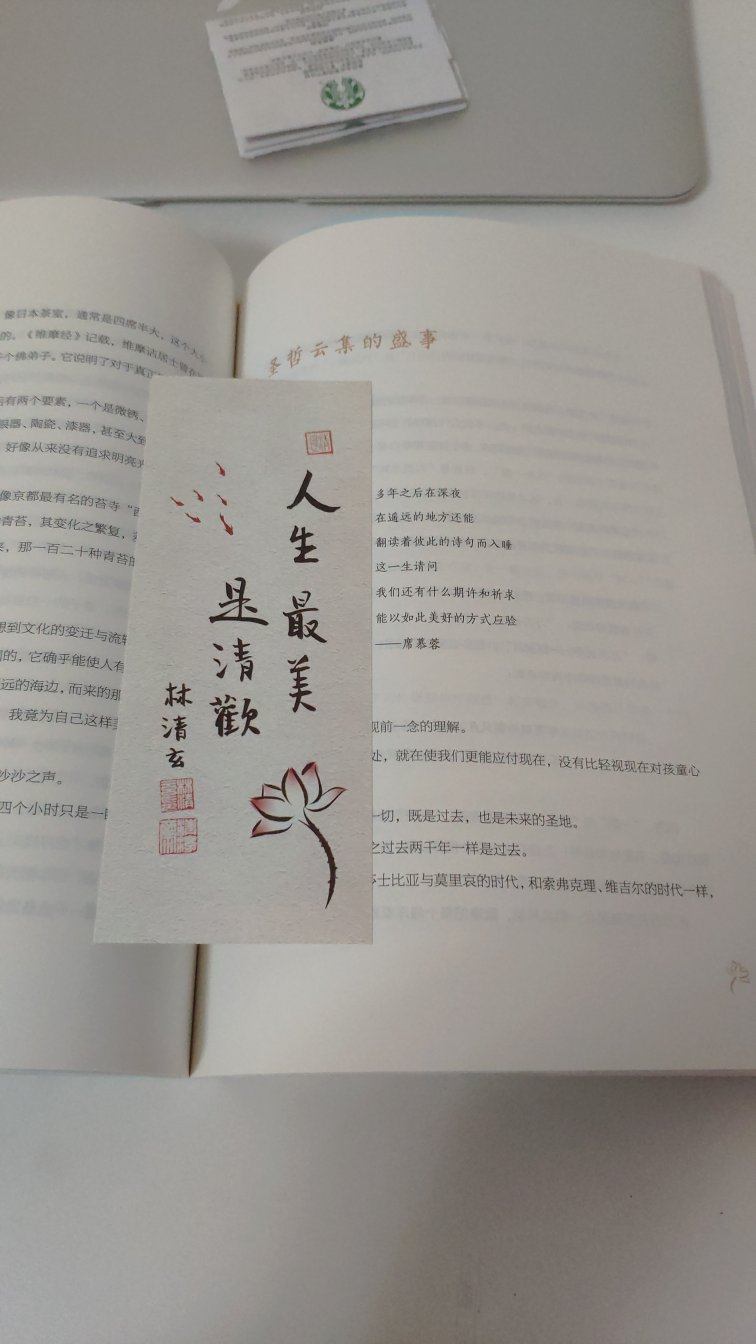 像日本茶室，通常是四席半大，这个大小
的。《维摩经》记载，维摩诘居士曾在
个佛弟子。它说明了对于真正
有两个要素，一个是微锈、
银器、陶瓷、漆器，甚至大到
好像从来没有追求明亮光
像京都最有名的苔寺“西
青苔，其变化之繁复，
来，那一百二十种青苔的
想到文化的变迁与流转
的，它确乎能使人有
远的海边，而来的那
我竟为自己这样美
沙沙之声。
四个小时只是一瞬
人生最美
是清歡
林清玄
圣哲云集的盛事
多年之后在深夜
在遥远的地方还能
翻读着彼此的诗句而入睡
这一生请问
我们还有什么期许和祈求
能以如此美好的方式应验
——席慕蓉
现前一念的理解。
处，就在使我们更能应付现在，没有比轻视现在对孩童心
一切，既是过去，也是未来的圣地。
之过去两千年一样是过去。
莎士比亚与莫里哀的时代，和索弗克理、维吉尔的时代一样，